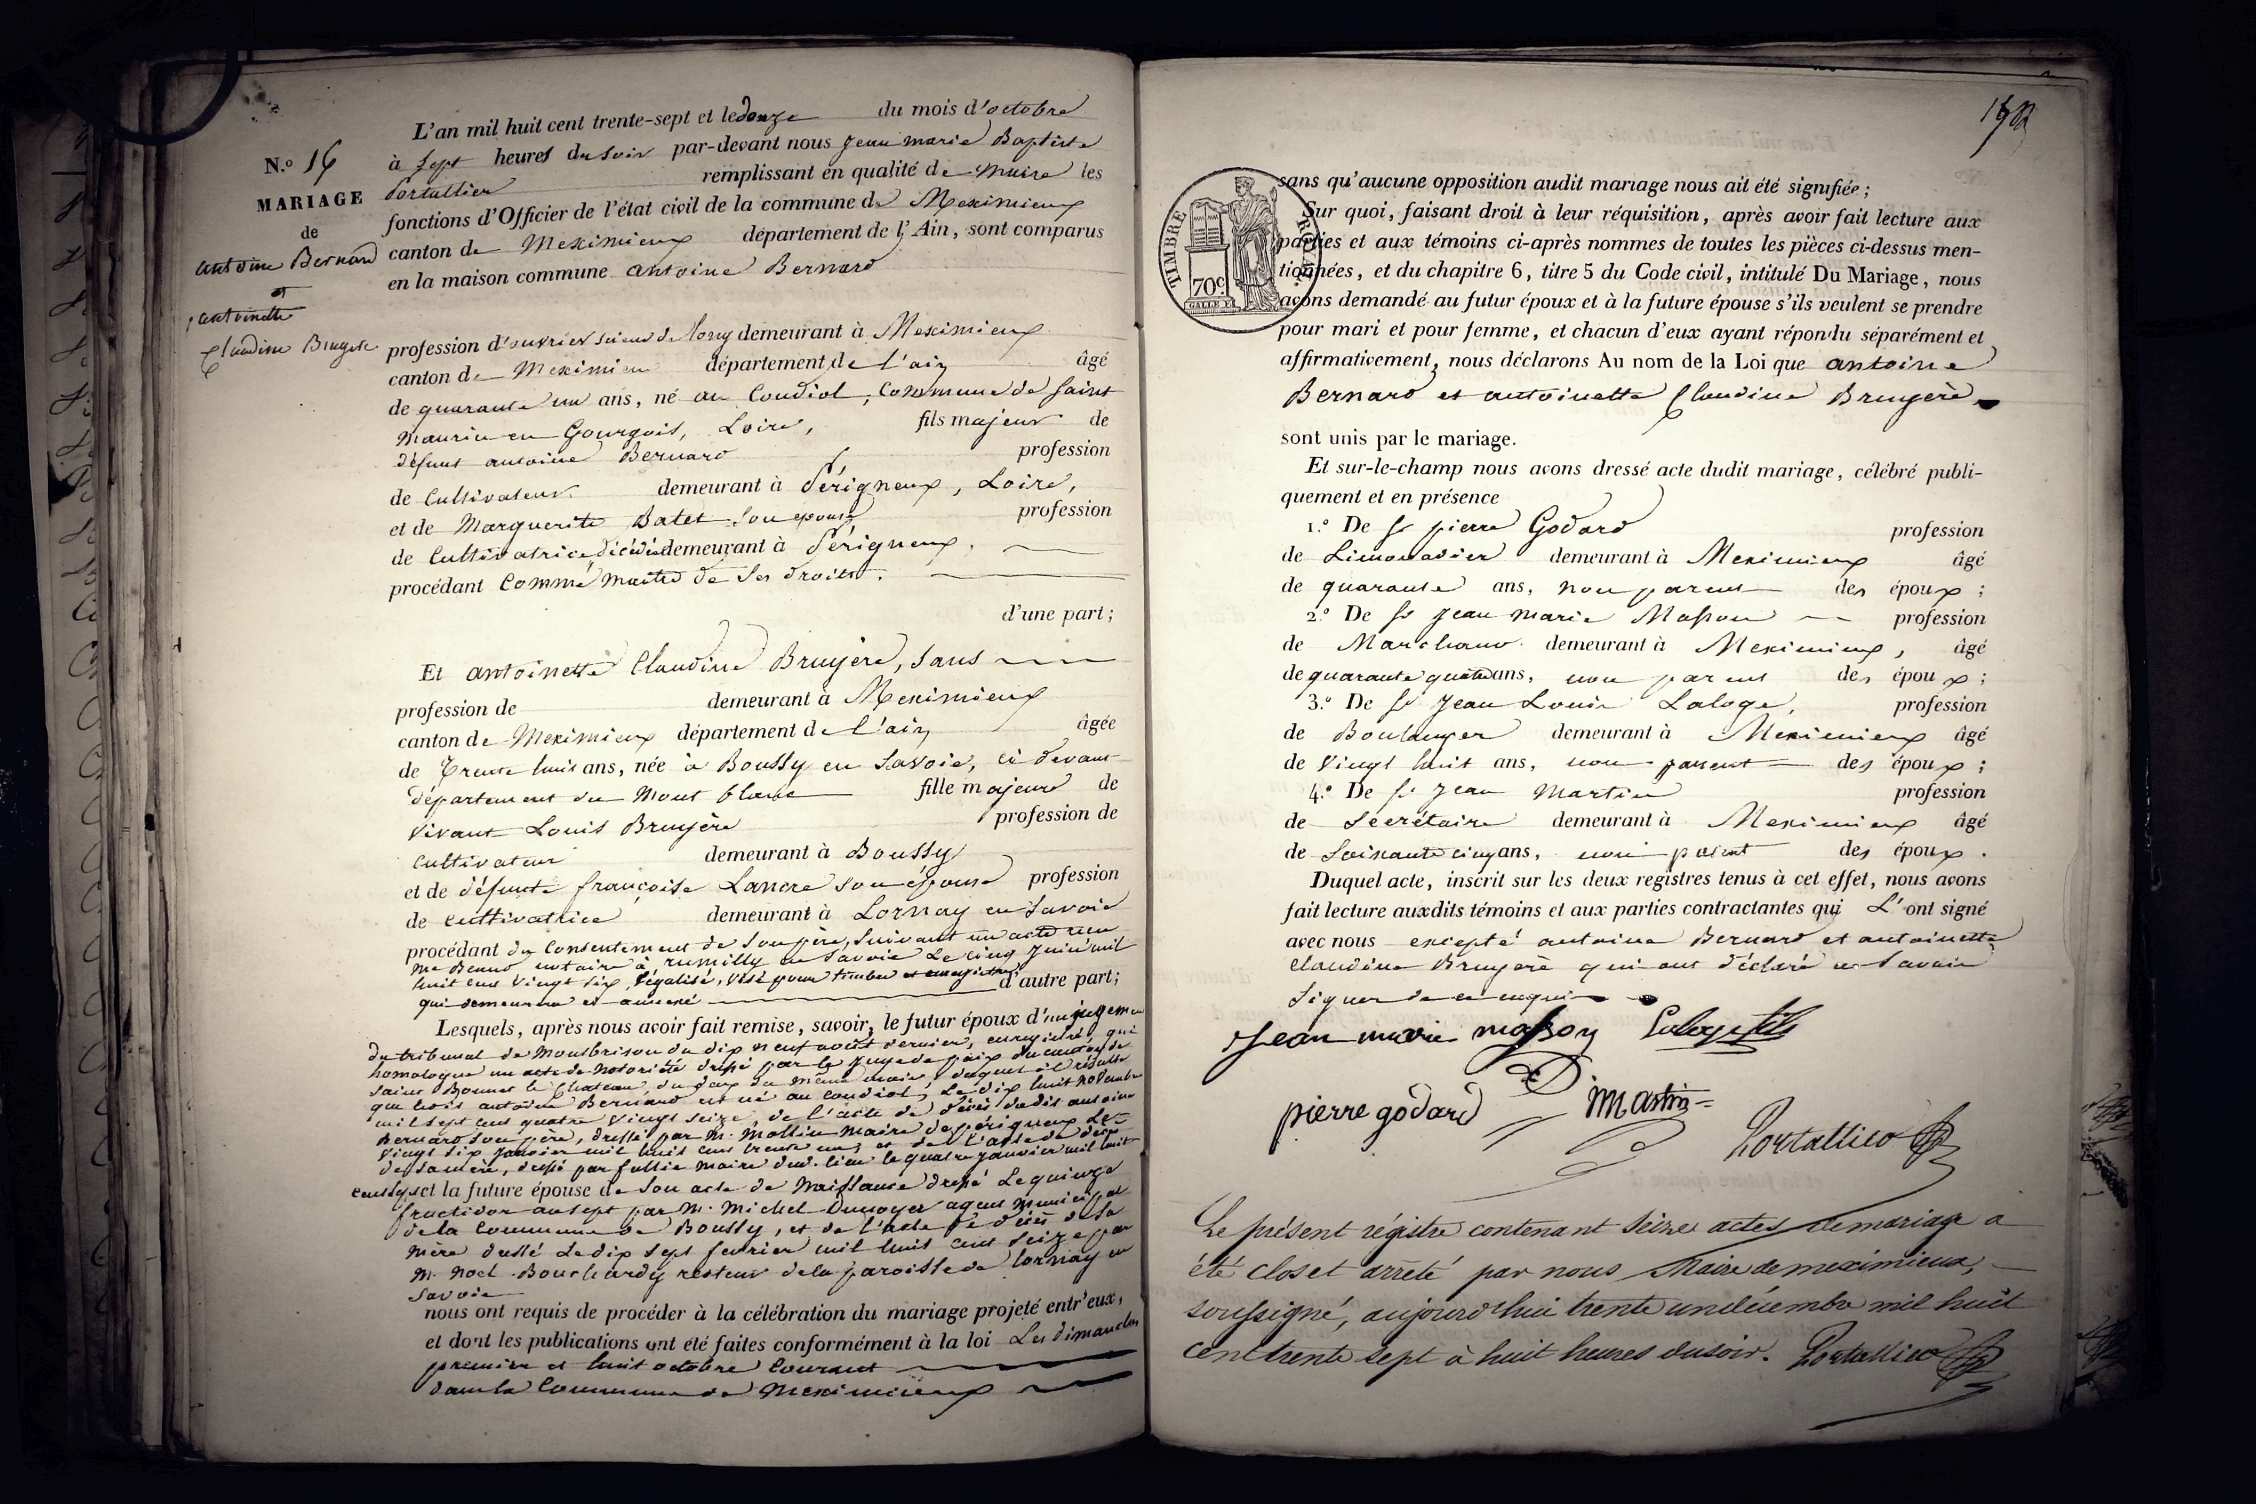 L'an mil huit cent trente-sept et le douze du mois d'octobre
N.o 16
à sept heures du soir par-devant nous jean marie Baptiste
MARIAGE
Portallier remplissant en qualité de maire les
fonctions d'Officier de l'état civil de la commune de Meximieux
de
antoine Bernard
canton de Meximieux département de l'Ain, sont comparus
en la maison commune antoine Bernard
et
antoinette
Claudine Bruyere
profession d'ouvrier scieur de long demeurant à Meximieux
canton de Meximieu département de l'ain âgé
de quarante un ans, né au Coudiol, Commune de saint
maurice en Gourgois, Loire, fils majeur de
défunt antoine Bernard profession
de Cultivateur demeurant à Périgneux, Loire,
et de Marguerite Batet son epouse profession
de Cultivatrice décédée demeurant à Périgneux,
procédant Comme maitre de ses droits.
d'une part;
Et antoinette Claudine Bruyère, sans
profession de demeurant à Meximieux
canton de Meximieux département de l'ain âgée
de Trente huit ans, née à Boussy en Savoie, ci devant
département du Mont blanc fille majeure de
vivant Louis Bruyère profession de
cultivateur demeurant à Boussy
et de défunte françoise Lancre son épouse profession
de cultivatrice demeurant à Lornay en Savoie
procédant du Consentement de son père, suivant un acte reçu
me notaire à rumilly en Savoie Le cinq juin mil
huit cent vingt six, légalisé, visé pour timbre et enregistré, d'autre part;
qui demeurera et annexé
Lesquels, après nous avoir fait remise, savoir, le futur époux d'un jugement
du tribunal de Montbrison du dix neuf août dernier, enregistré, qui
homologue un acte de notoriété dressé par le juge de paix du canton de
saint Bonnet le Chateau, du deux du même mois duquel il résulte
que antoine Bernard est né au coudiol, Le dix huit novembre
mil sept cent quatre vingt seize, de l'acte de décès dudit antoine
Bernard son père, dressé par M. Mollin maire de périgneux Le
vingt six janvier mil huit cent trente un, et de l'acte de décès
de sa mère, dressé par maire dud. lieu le quatre janvier mil huit
et la future épouse de son acte de Naissance dressé Le quinze
fructidor an sept par M. Michel Dunoyer agent municipal
de la Commune de Boussy, et de l'acte de décès de sa
mère dressé Le dix sept fevrier mil huit cent seize par
M. Noel Bouchardy recteur de la paroisse de Lornay en
Savoie
nous ont requis de procéder à la célébration du mariage projeté entr'eux,
et dont les publications ont été faites conformément à la loi Les dimanches
premier et huit octobre Courant
dans la Commune de Meximieux
TIMBRE ROYAL
70c.
sans qu'aucune opposition audit mariage nous ait été signifiée;
Sur quoi, faisant droit à leur réquisition, après avoir fait lecture aux
parties et aux témoins ci-après nommes de toutes les pièces ci-dessus men-
tionnées, et du chapitre 6, titre 5 du Code civil, intitulé Du Mariage, nous
avons demandé au futur époux et à la future épouse s'ils veulent se prendre
pour mari et pour femme, et chacun d'eux ayant répondu séparément et
affirmativement, nous déclarons Au nom de la Loi que antoine
Bernard et antoinette Claudine Bruyère
sont unis par le mariage.
Et sur-le-champ nous avons dressé acte dudit mariage, célébré publi-
quement et en présence
1.o De sr pierre Godard profession
de Limonadier demeurant à Meximieux âgé
de quarante ans, non parent des époux;
2.o De sr jean marie Masson profession
de Marchand demeurant à Meximieux, âgé
de quarante quatre ans, non parent des époux;
3.o De sr jean Louis Laloge, profession
de Boulanger demeurant à Meximieux âgé
de vingt huit ans, non parent des époux;
4.o De sr jean Martin profession
de Secrétaire demeurant à Meximieux âgé
de Soixante cinq ans, non parent des époux.
Duquel acte, inscrit sur les deux registres tenus à cet effet, nous avons
fait lecture auxdits témoins et aux parties contractantes qui L'ont signé
avec nous excepté antoine Bernard et antoinette
Claudine Bruyere qui ont déclaré ne Savoir
Signer de ce enquis
jean marie masson Laloge fils
pierre godard Martin
Portallier
Le présent régistre contenant seize actes de mariage a
été clos et arrêté par nous Maire de meximieux,
soussigné, aujourd'hui trente un décembre mil huit
cent trente sept à huit heures du soir. Portallier